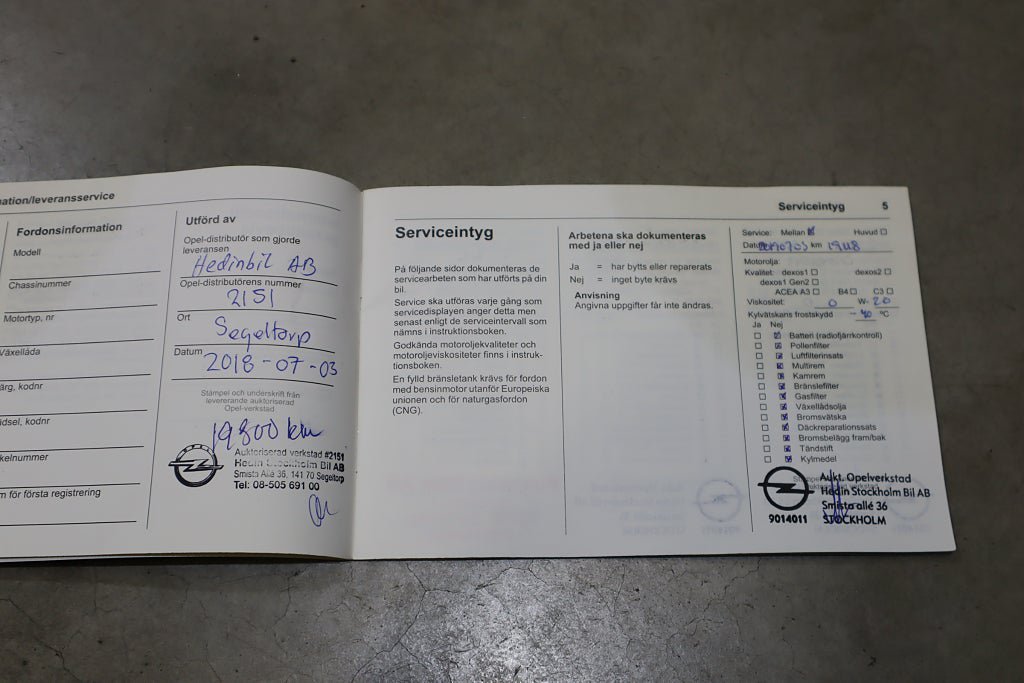 mation/leveransservice
Fordonsinformation
Modell
Chassinummer
Motortyp, nr
Växellåda
ärg, kodnr
dsel, kodnr
kelnummer
m för första registrering
Utförd av
Opel-distributör som gjorde
leveransen
Hedinbil AB
Opel-distributörens nummer
2151
Ort
Segeltorp
Datum
2018-07-03
Stämpel och underskrift från
levererande auktoriserad
Opel-verkstad
19800 km
Auktoriserad verkstad #2151
Hedin Stockholm Bil AB
Smista Allé 36, 141 70 Segeltorp
Tel: 08-505 691 00
Serviceintyg 5
Serviceintyg
På följande sidor dokumenteras de
servicearbeten som har utförts på din
bil.
Service ska utföras varje gång som
servicedisplayen anger detta men
senast enligt de serviceintervall som
nämns i instruktionsboken.
Godkända motoroljekvaliteter och
motoroljeviskositeter finns i instruk-
tionsboken.
En fylld bränsletank krävs för fordon
med bensinmotor utanför Europeiska
unionen och för naturgasfordon
(CNG).
Arbetena ska dokumenteras
med ja eller nej
Ja = har bytts eller reparerats
Nej = inget byte krävs
Anvisning
Angivna uppgifter får inte ändras.
Service: Mellan Huvud
Datum km
Motorolja:
Kvalitet: dexos1 dexos2
dexos1 Gen2
ACEA A3 B4 C3
Viskositet: 0 W- 20
Kylvätskans frostskydd -40 °C
Ja Nej
Batteri (radiofjärrkontroll)
Pollenfilter
Luftfilterinsats
Multirem
Kamrem
Bränslefilter
Gasfilter
Växellådsolja
Bromsvätska
Däckreparationssats
Bromsbelägg fram/bak
Tändstift
Kylmedel
Aukt. Opelverkstad
Hedin Stockholm Bil AB
Smista allé 36
9014011 STOCKHOLM